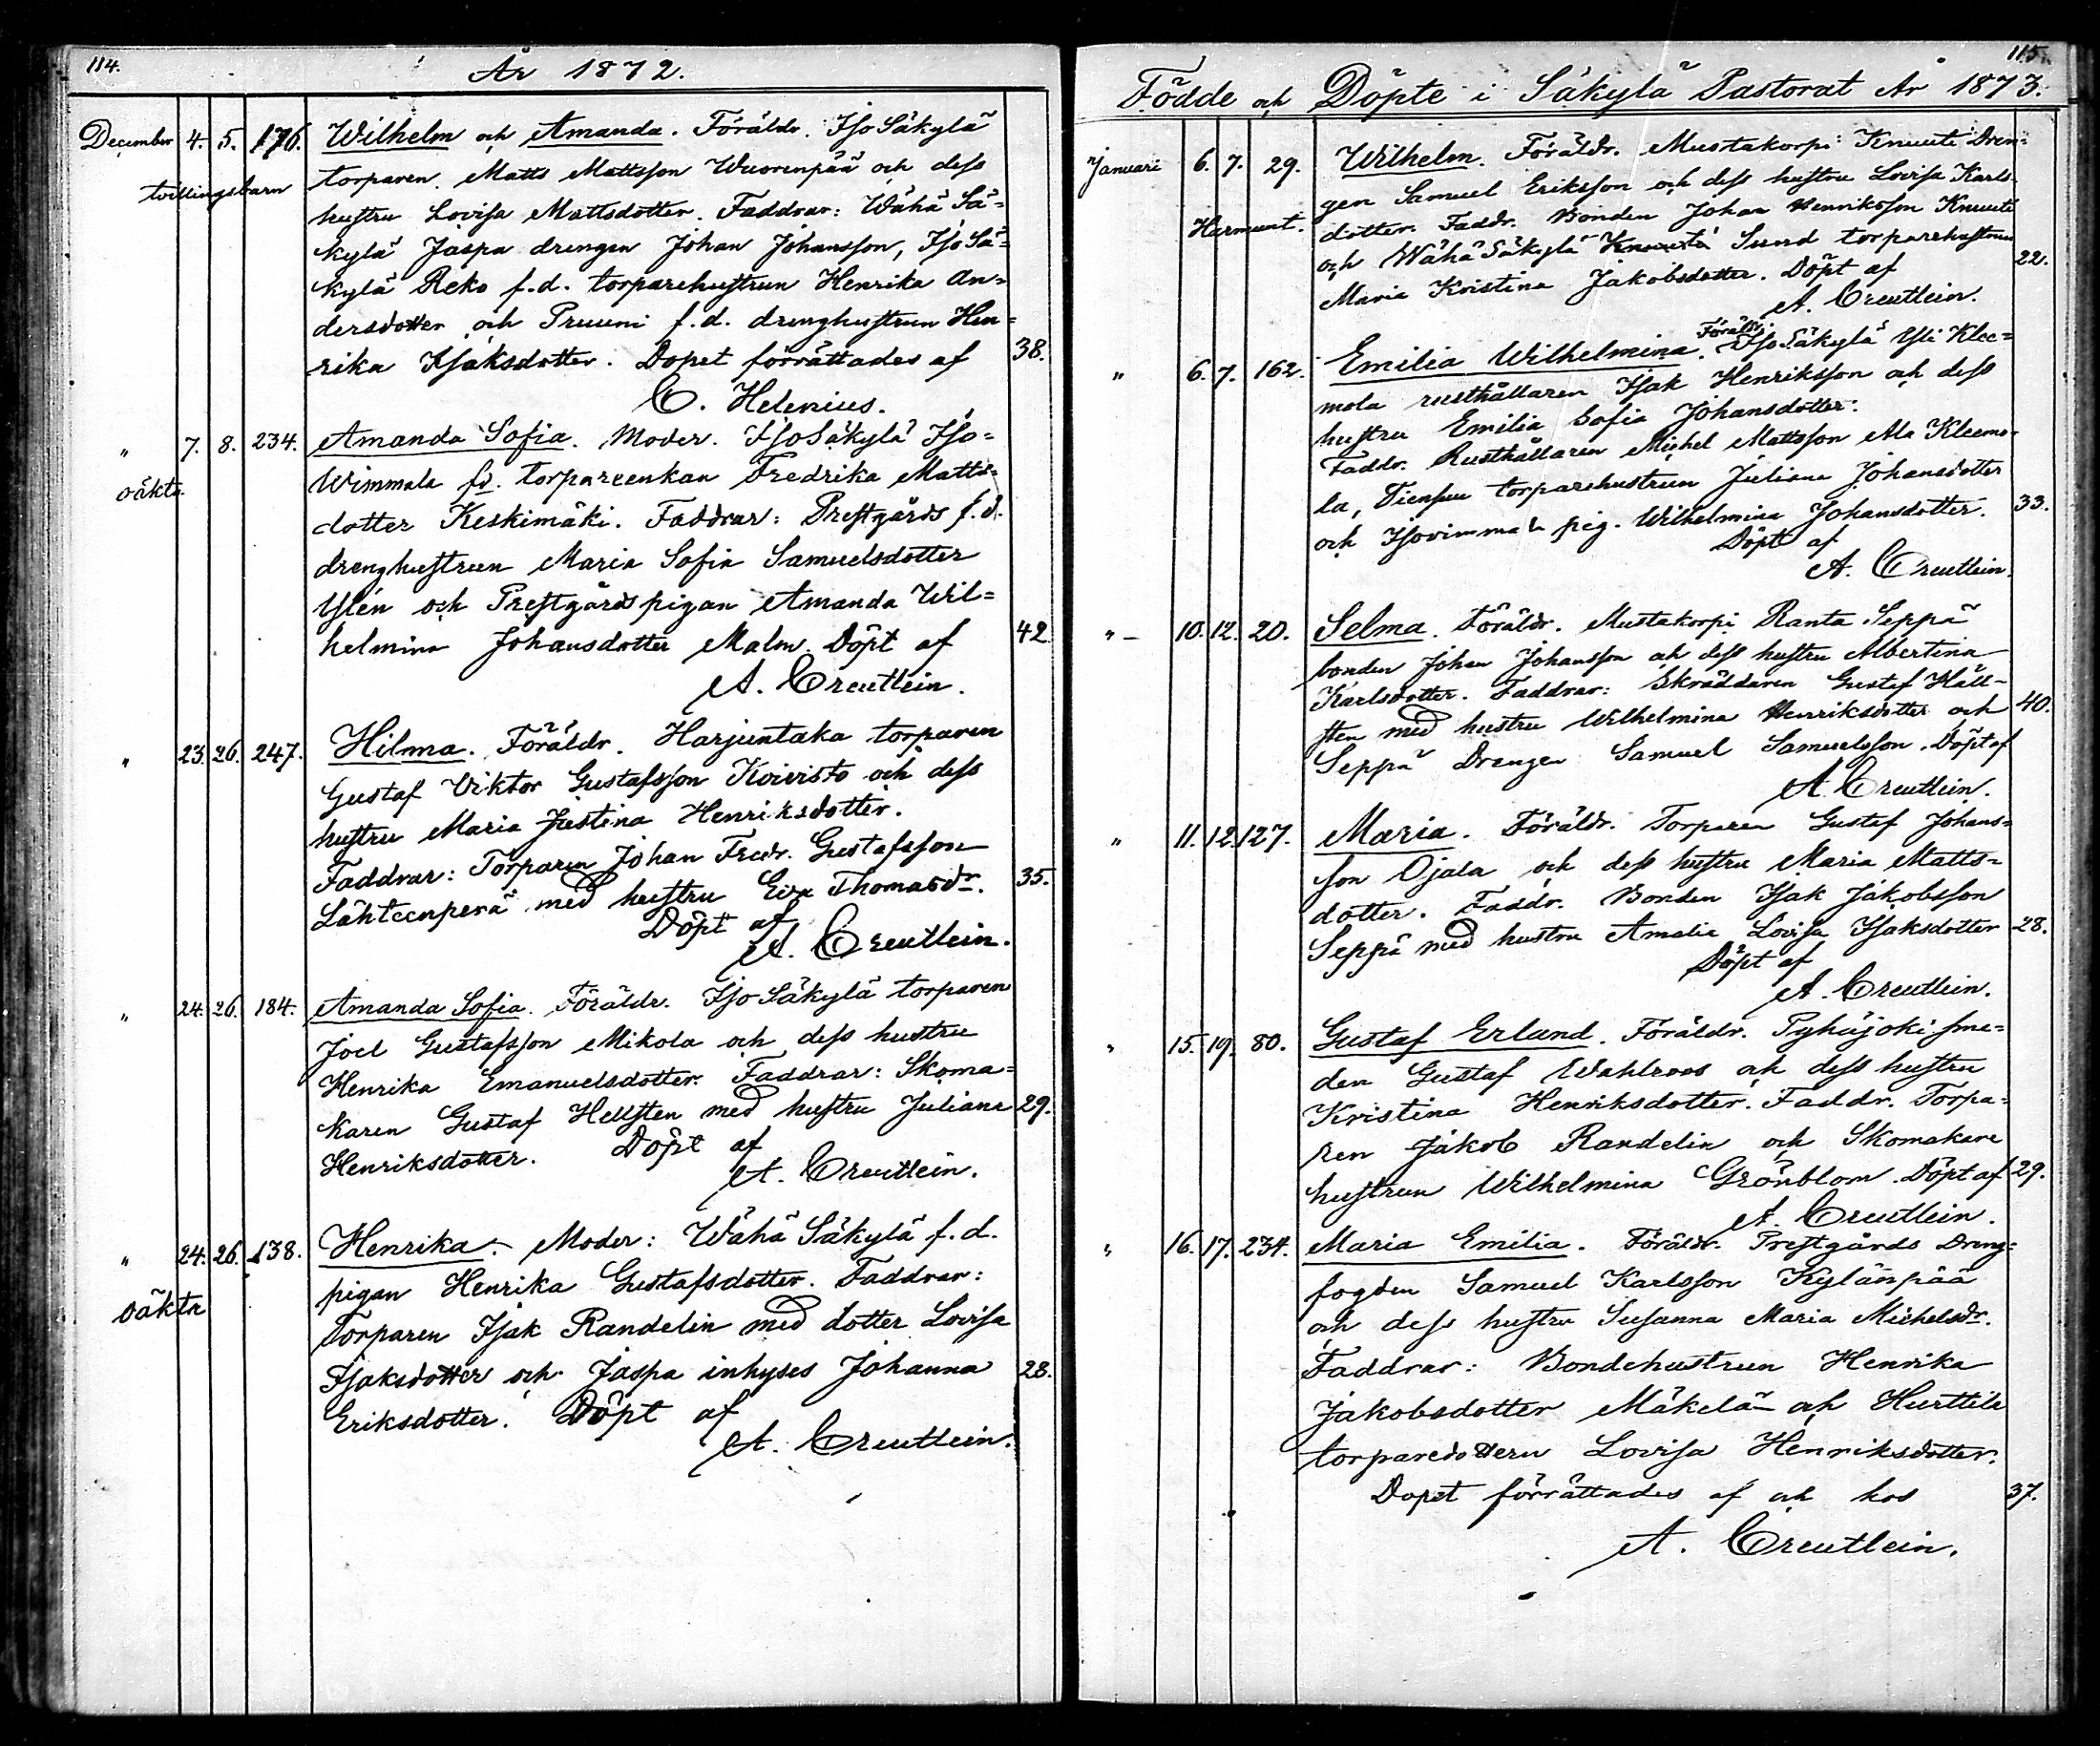 114.
År 1872.
December 4. 5. 176. Wilhelm och Amanda. Föräldr. Iso Säkylä
tvillingsbarn
torparen Matts Mattsson Wuorenpää och dess
hustru Lovisa Mattsdotter. Faddrar: Wähä Sä=
kylä Jaspa drengen Johan Johansson, Iso Sä=
kylä Reko f.d. torparehustrun Henrika An=
dersdotter och Pruuni f.d. drenghustrun Hen=
rika Isaksdotter. Dopet förrättades af 38.
C. Helenius.
" 7. 8. 234. Amanda Sofia. Moder. Iso Säkylä Iso=
oäkta.
Wimmala fd. torpareenkan Fredrika Matts=
dotter Keskimäki. Faddrar: Prestgårds f.d.
drenghustrun Maria Sofia Samuelsdotter
Ylén och Prestgårdspigan Amanda Wil=
helmina Johansdotter Malm. Döpt af 42
A. Creutlein.
" 23. 26. 247. Hilma. Föräldr. Harjuntaka torparen
Gustaf Viktor Gustafsson Koivisto och dess
hustru Maria Justina Henriksdotter.
Faddrar: Torparen Johan Fredr. Gustafsson
Lähteenperä med hustru Eva Thomasdr. 35.
Döpt af
A. Creutlein.
" 24. 26. 184. Amanda Sofia. Föräldr. Iso Säkylä torparen
Joel Gustafsson Mikola och dess hustru
Henrika Emanuelsdotter. Faddrar: Skoma=
karen Gustaf Hellsten med hustru Juliana 29.
Henriksdotter. Döpt af
A. Creutlein.
" 24. 26. 138. Henrika. Moder: Wähä Säkylä f.d.
oäkta
pigan Henrika Gustafsdotter. Faddrar:
Torparen Isak Randelin med dotter Lovisa
Isaksdotter och Jaspa inhyses Johanna 28.
Eriksdotter. Döpt af
A. Creutlein.
115.
Födde och Döpte i Säkylä Pastorat År 1873.
Januari 6. 7. 29. Wilhelm. Föräldr. Mustakorpi Knuuti Dren=
gen Samuel Eriksson och dess hustru Lovisa Karls=
dotter. Faddr. Bonden Johan Henriksson Knuuti
och Wähä Säkylä Sund torparehustrun
Maria Kristina Jakobsdotter. Döpt af 22.
A. Creutlein.
Föräldr.
" 6. 7. 162. Emilia Wilhelmina. Iso Säkylä Yli Klee=
mola rusthållaren Isak Henriksson och dess
hustru Emilia Sofia Johansdotter.
Faddr. Rusthållaren Michel Mattsson Ala Kleemo=
la, torparehustrun Juliana Johansdotter
och Isovimmala pig. Wilhelmina Johansdotter. 33.
Döpt af
A. Creutlein.
" 10. 12. 20. Selma. Föräldr. Mustakorpi Ranta Seppä
bonden Johan Johansson och dess hustru Albertina
Karlsdotter. Faddrar: Skräddaren Gustaf Häll=
sten med hustru Wilhelmina Henriksdotter och 40.
Seppä Drengen Samuel Samuelsson. Döpt af
A. Creutlein.
" 11. 12. 127. Maria. Föräldr. Torparen Gustaf Johans=
son Ojala och dess hustru Maria Matts=
dotter. Faddr. Bonden Isak Jakobsson
Seppä med hustru Amalia Lovisa Isaksdotter 28.
Döpt af
A. Creutlein.
" 15. 19. 80. Gustaf Erland. Föräldr. Pyhäjoki sme=
den Gustaf Wahlroos och dess hustru
Kristina Henriksdotter. Faddr. Torpa=
ren Jakob Randelin och Skomakare
hustrun Wilhelmina Grönblom. Döpt af 29.
A. Creutlein.
" 16. 17. 234. Maria Emilia. Föräldr. Prestgårds Dreng=
fogden Samuel Karlsson Kylänpää
och dess hustru Susanna Maria Michelsdr.
Faddrar: Bondehustrun Henrika
Jakobsdotter Mäkelä och Hurttila
torparedottern Lovisa Henriksdotter.
Dopet förrättades af och hos 37.
A. Creutlein.